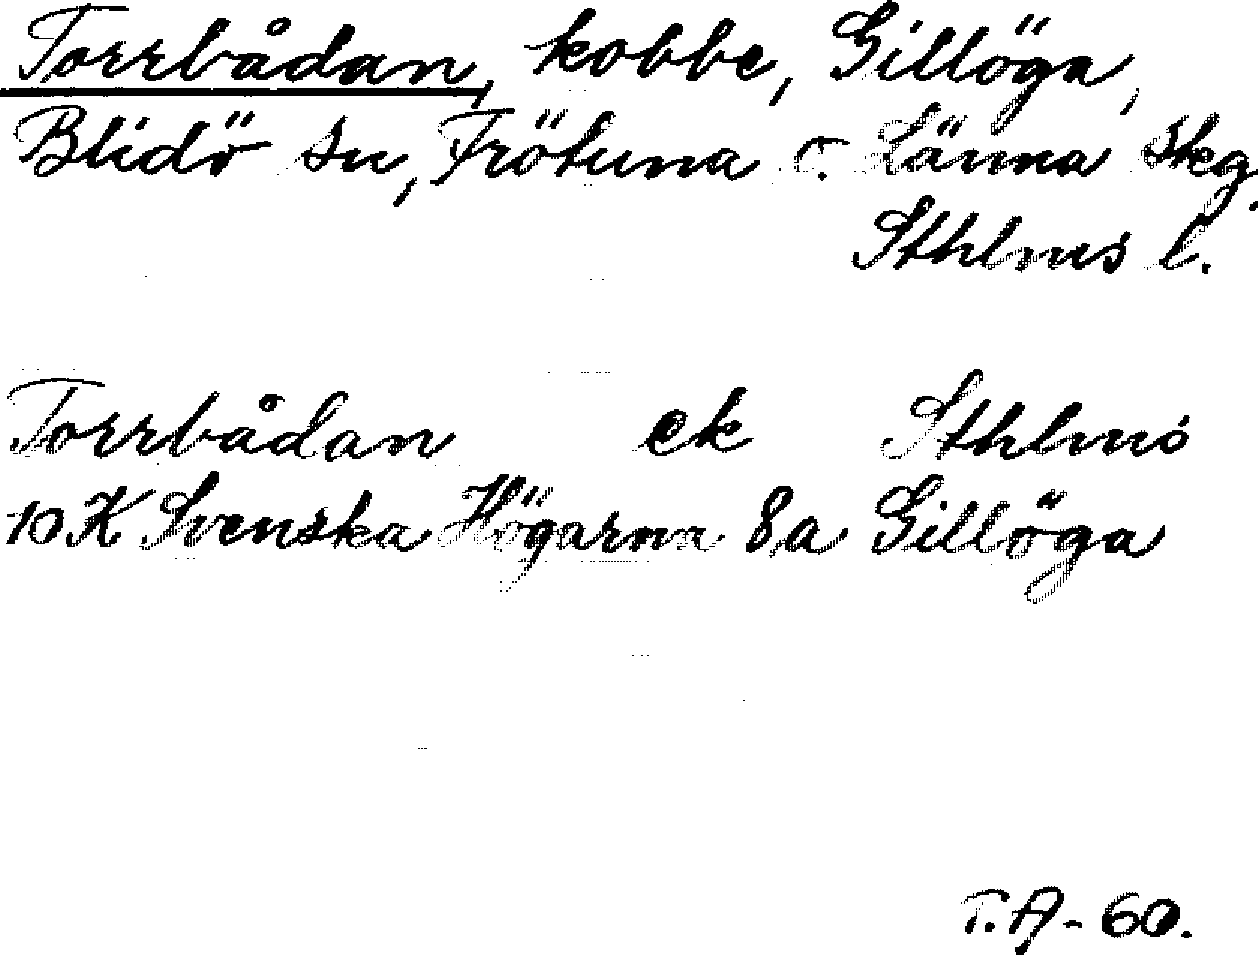 Torrbådan, kobbe, Gillöga,
Blidö sn, Frötuna o. Länna skg.
Sthlms l.
Torrbådan ek Sthlms
10 K Svenska Högarna 8a Gillöga
T.A-60.